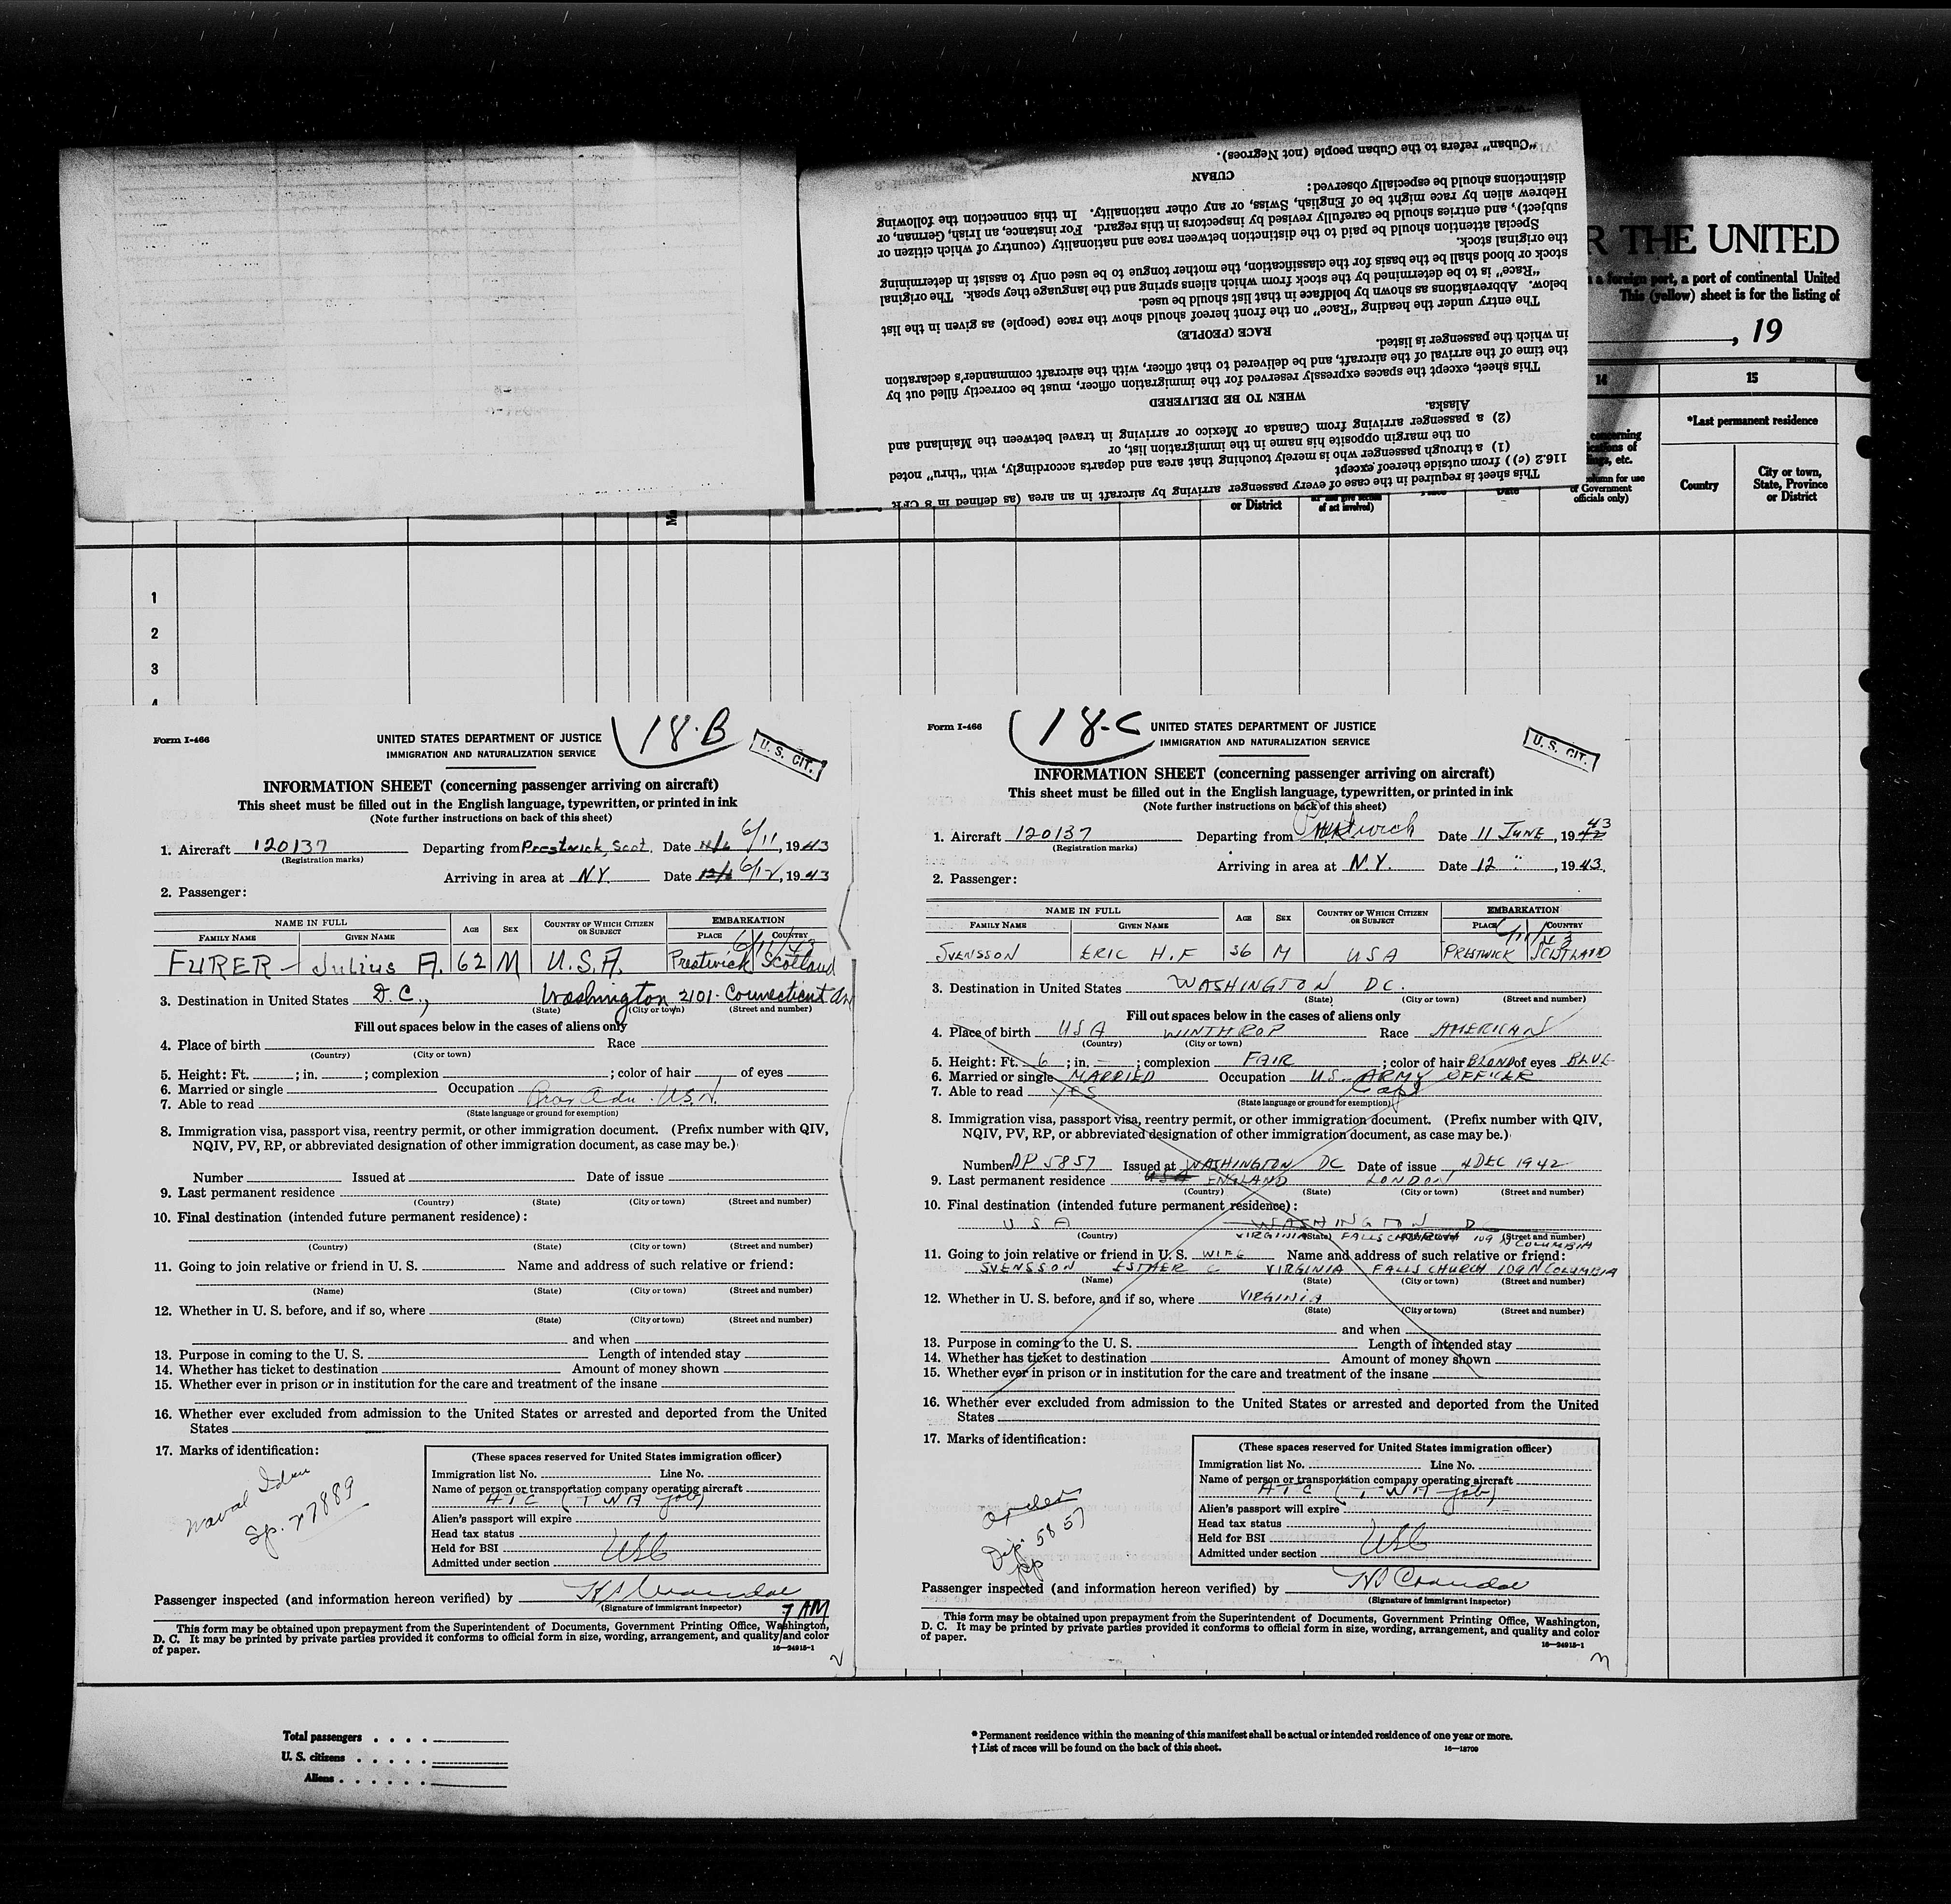 "Cuban" refers to the Cuban people (not Negroes).
CUBAN
distinctions should be especially observed:
Hebrew alien by race might be of English, Swiss, or any other nationality. In this connection the following
subject), and entries should be carefully revised by inspectors in this regard. For instance, an Irish, German, or
Special attention should be paid to the distinction between race and nationality (country of which citizen or
the original stock.
stock or blood shall be the basis for the classification, the mother tongue to be used only to assist in determining
"Race" is to be determined by the stock from which aliens spring and the language they speak. The original
below. Abbreviations as shown by boldface in that list should be used.
The entry under the heading "Race" on the front hereof should show the race (people) as given in the list
RACE (PEOPLE)
in which the passenger is listed.
the time of the arrival of the aircraft, and be delivered to that officer, with the aircraft commander's declaration
This sheet, except the spaces expressly reserved for the immigration officer, must be correctly filled out by
WHEN TO BE DELIVERED
Alaska.
(2) a passenger arriving from Canada or Mexico or arriving in travel between the Mainland and
on the margin opposite his name in the immigration list, or
(1) a through passenger who is merely touching that area and departs accordingly, with "thru" noted
116.2 (c)) from outside thereof except
This sheet is required in the case of every passenger arriving by aircraft in an area (as defined in 8 CFR
R THE UNITED
a foreign port, a port of continental United
This (yellow) sheet is for the listing of
, 19
14 15
*Last permanent residence
concerning
etc.
column for use
of Government
officials only)
Country
City or town,
State, Province
or District
or District
of act involved)
Date
1
2
3
4
Form I-466
18-B
UNITED STATES DEPARTMENT OF JUSTICE
IMMIGRATION AND NATURALIZATION SERVICE
U. S. CIT.
INFORMATION SHEET (concerning passenger arriving on aircraft)
This sheet must be filled out in the English language, typewritten, or printed in ink
(Note further instructions on back of this sheet)
1. Aircraft 120137 Departing from Prestwick, Scot. Date 6/11, 1943
(Registration marks)
Arriving in area at N.Y. Date 12/6 6/12, 1943
2. Passenger:
NAME IN FULL AGE SEX COUNTRY OF WHICH CITIZEN OR SUBJECT EMBARKATION
FAMILY NAME GIVEN NAME PLACE COUNTRY
6/11/43
FURER Julius A. 62 M U.S.A. Prestwick Scotland
3. Destination in United States D.C., Washington 2101 Connecticut Av
(State) (City or town) (Street and number)
Fill out spaces below in the cases of aliens only
4. Place of birth Race
(Country) (City or town)
5. Height: Ft. ; in. ; complexion ; color of hair of eyes
6. Married or single Occupation
7. Able to read U.S.N.
(State language or ground for exemption)
8. Immigration visa, passport visa, reentry permit, or other immigration document. (Prefix number with QIV,
NQIV, PV, RP, or abbreviated designation of other immigration document, as case may be.)
Number Issued at Date of issue
9. Last permanent residence
(Country) (State) (City or town) (Street and number)
10. Final destination (intended future permanent residence):
(Country) (State) (City or town) (Street and number)
11. Going to join relative or friend in U. S. Name and address of such relative or friend:
(Name) (State) (City or town) (Street and number)
12. Whether in U. S. before, and if so, where
(State) (City or town) (Street and number)
and when
13. Purpose in coming to the U. S. Length of intended stay
14. Whether has ticket to destination Amount of money shown
15. Whether ever in prison or in institution for the care and treatment of the insane
16. Whether ever excluded from admission to the United States or arrested and deported from the United
States
17. Marks of identification:
Naval Iden
Sp. 27889
(These spaces reserved for United States immigration officer)
Immigration list No. Line No.
Name of person or transportation company operating aircraft
ATC (TWA job)
Alien's passport will expire
Head tax status
Held for BSI USC
Admitted under section
Passenger inspected (and information hereon verified) by
(Signature of immigrant inspector)
7 AM
This form may be obtained upon prepayment from the Superintendent of Documents, Government Printing Office, Washington,
D. C. It may be printed by private parties provided it conforms to official form in size, wording, arrangement, and quality and color
of paper.
16—24915-1
2
Form I-466
18-C
UNITED STATES DEPARTMENT OF JUSTICE
IMMIGRATION AND NATURALIZATION SERVICE
U. S. CIT.
INFORMATION SHEET (concerning passenger arriving on aircraft)
This sheet must be filled out in the English language, typewritten, or printed in ink
(Note further instructions on back of this sheet)
1. Aircraft 120137 Departing from Prestwick Date 11 JUNE, 1942 43
(Registration marks)
Arriving in area at N.Y. Date 12 ", 1943.
2. Passenger:
NAME IN FULL AGE SEX COUNTRY OF WHICH CITIZEN OR SUBJECT EMBARKATION
FAMILY NAME GIVEN NAME PLACE COUNTRY
6/11/43
SVENSSON ERIC H.F 36 M USA PRESTWICK SCOTLAND
3. Destination in United States WASHINGTON DC.
(State) (City or town) (Street and number)
Fill out spaces below in the cases of aliens only
4. Place of birth USA WINTHROP Race AMERICAN
(Country) (City or town)
5. Height: Ft. 6 ; in. – ; complexion FAIR ; color of hair BLOND of eyes BLUE
6. Married or single MARRIED Occupation U.S. ARMY OFFICER
7. Able to read YES Capt
(State language or ground for exemption)
8. Immigration visa, passport visa, reentry permit, or other immigration document. (Prefix number with QIV,
NQIV, PV, RP, or abbreviated designation of other immigration document, as case may be.)
Number DP 5857 Issued at WASHINGTON DC Date of issue 4 DEC 1942
9. Last permanent residence USA ENGLAND LONDON
(Country) (State) (City or town) (Street and number)
10. Final destination (intended future permanent residence):
USA WASHINGTON D
VIRGINIA FALLS CHURCH 109 N COLUMBIA
(Country) (State) (City or town) (Street and number)
11. Going to join relative or friend in U. S. WIFE Name and address of such relative or friend:
SVENSSON ESTHER C VIRGINIA FALLS CHURCH 109 N COLUMBIA
(Name) (State) (City or town) (Street and number)
12. Whether in U. S. before, and if so, where VIRGINIA
(State) (City or town) (Street and number)
and when
13. Purpose in coming to the U. S. Length of intended stay
14. Whether has ticket to destination Amount of money shown
15. Whether ever in prison or in institution for the care and treatment of the insane
16. Whether ever excluded from admission to the United States or arrested and deported from the United
States
17. Marks of identification:
Order
Dip. 5857
PP
(These spaces reserved for United States immigration officer)
Immigration list No. Line No.
Name of person or transportation company operating aircraft
ATC (TWA job)
Alien's passport will expire
Head tax status
Held for BSI USC
Admitted under section
Passenger inspected (and information hereon verified) by
(Signature of immigrant inspector)
This form may be obtained upon prepayment from the Superintendent of Documents, Government Printing Office, Washington,
D. C. It may be printed by private parties provided it conforms to official form in size, wording, arrangement, and quality and color
of paper.
16—24915-1
Total passengers . . . .
U. S. citizens . . . . .
Aliens . . . . . .
* Permanent residence within the meaning of this manifest shall be actual or intended residence of one year or more.
† List of races will be found on the back of this sheet.
16—13709